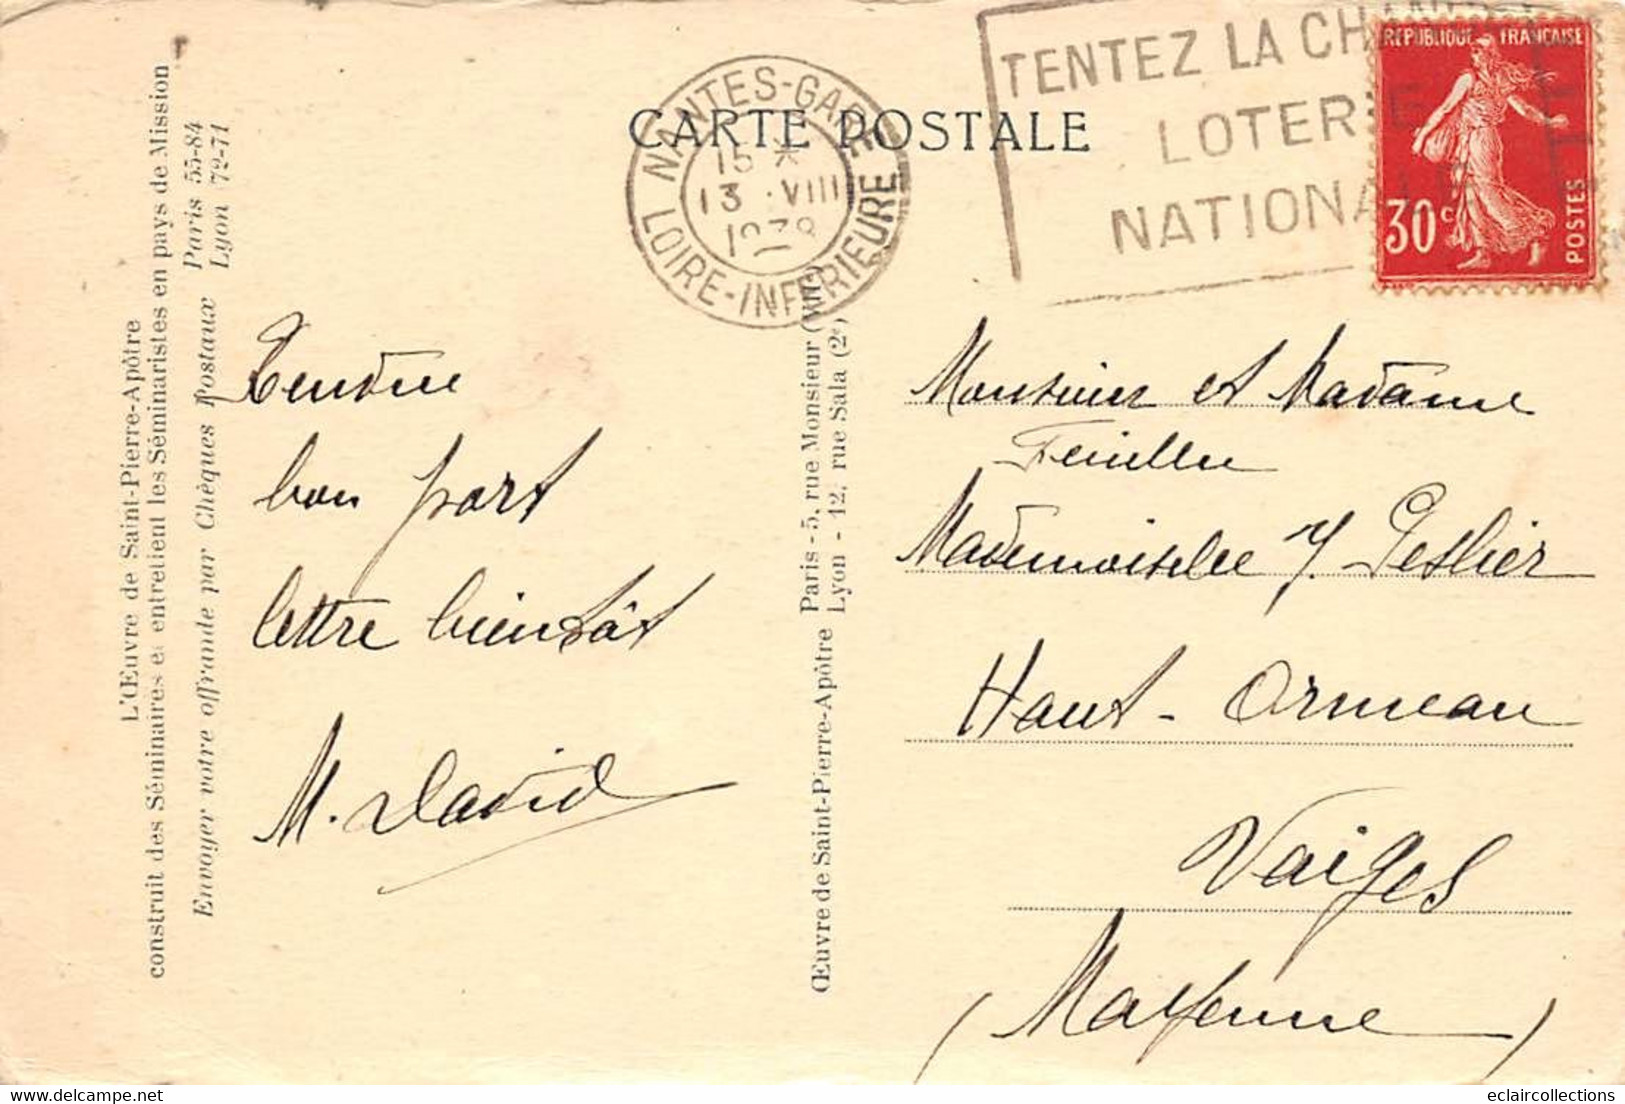 L'Œuvre de Saint-Pierre-Apôtre
construit des Séminaires et entretient les Séminaristes en pays de Mission
Envoyer votre offrande par Chèques Postaux
Paris 55-84
Lyon 72-71
CARTE POSTALE
NANTES-GARE
15 *
13 · VIII
1938
LOIRE-INFERIEURE
TENTEZ LA CHANCE
LOTERIE
NATIONALE
REPUBLIQUE FRANÇAISE
30c
POSTES
bon port
lettre bientôt
M. David
Œuvre de Saint-Pierre-Apôtre
Paris - 5, rue Monsieur (VIIe)
Lyon - 12, rue Sala (2e)
Monsieur et Madame
Mademoiselle Y. Peslier
Haut-Ormeau
Vaiges
(Mayenne)
eclaircollections